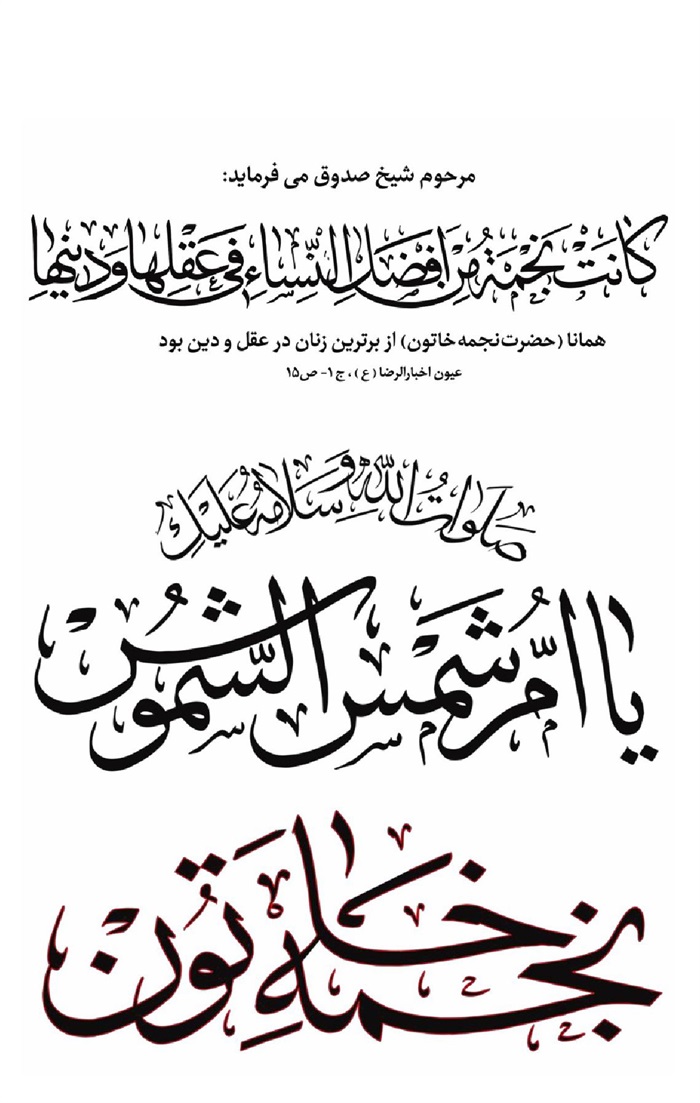 مرحوم شیخ صدوق می فرماید:
كانَتْ نَجْمَةُ مِنْ اَفْضَلِ النِّساءِ فی عَقْلِها وَ دینِها
همانا (حضرت نجمه خاتون) از برترین زنان در عقل و دین بود
عیون اخبارالرضا (ع)، ج۱- ص۱۵
صَلَواتُ اللّهِ وَ سَلامُهُ عَلَیْكِ
یا اُمَّ شَمْسِ الشُّموسْ
نجمه خاتون